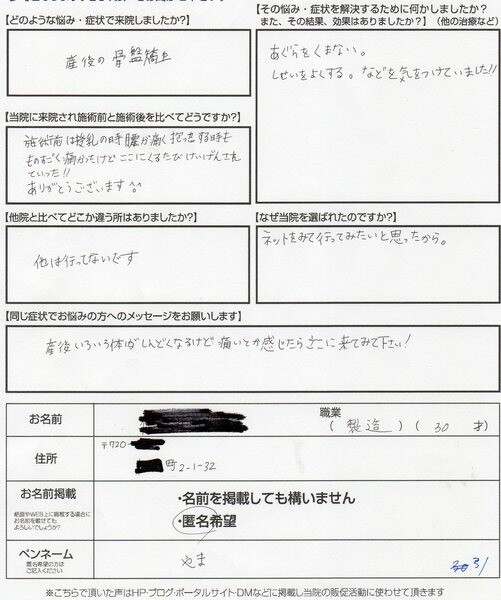 【どのような悩み・症状で来院しましたか?】
産後の骨盤矯正
【その悩み・症状を解決するために何かしましたか?
また、その結果、効果はありましたか?】(他の治療など)
あぐらをくまない。
しせいをよくする。などを気をつけていました!!
【当院に来院され施術前と施術後を比べてどうですか?】
施術前は授乳の時腰が痛く抱っこする時も
ものすごく痛かったけどここにくるたびけいげんされ
ていった!!
ありがとうございます^^
【他院と比べてどこか違う所はありましたか?】
他は行ってないです
【なぜ当院を選ばれたのですか?】
ネットをみて行ってみたいと思ったから。
【同じ症状でお悩みの方へのメッセージをお願いします】
産後いろいろ体がしんどくなるけど痛いとか感じたらここに来てみて下さい!
お名前
職業
(製造)(30才)
住所
〒720
町2-1-32
お名前掲載
紙面やWEB上に掲載する場合に
お名前を載せても
よろしいでしょうか?
・名前を掲載しても構いません
・匿名希望
ペンネーム
匿名希望の方は
ご記入ください
やま
31
※こちらで頂いた声はHP・ブログ・ポータルサイト・DMなどに掲載し当院の販促活動に使わせて頂きます